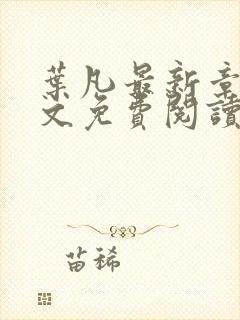 葉凡最新章
文免費閱讀
苗稀